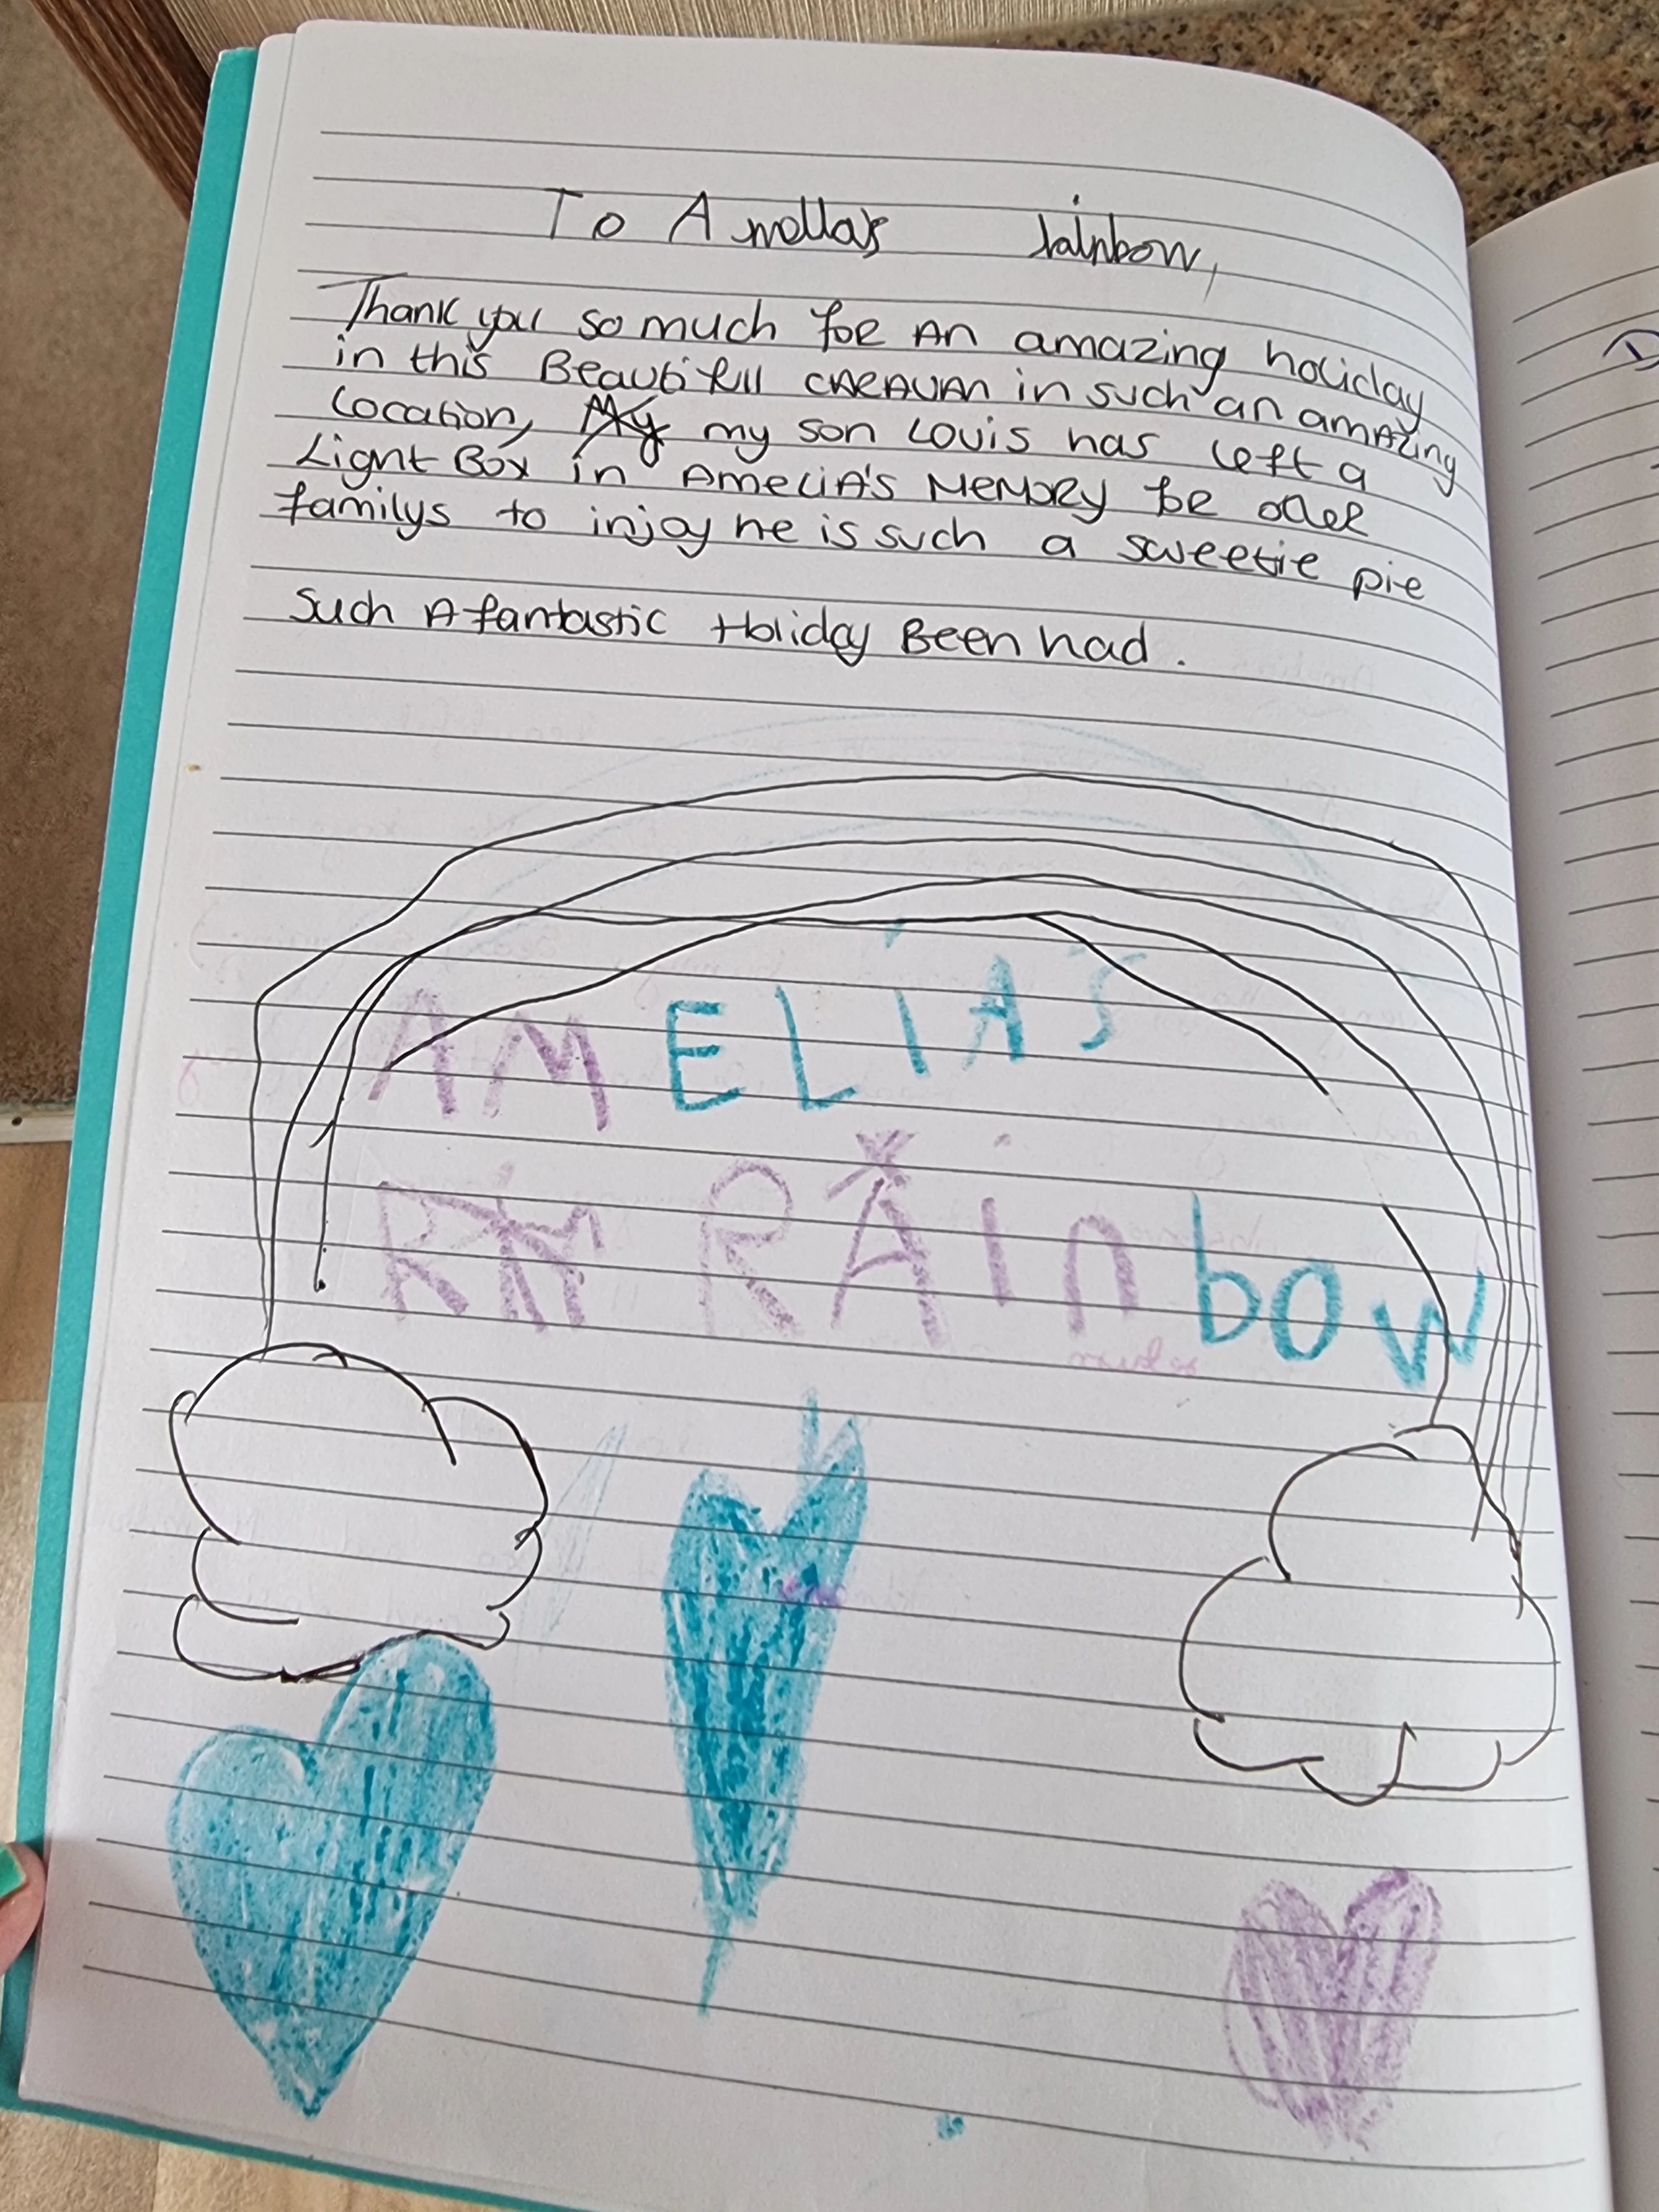 To Amella's rainbow,
Thank you so much for An amazing holiday
in this Beautifull CARAVAN in such an amAzing
Location, My my son Louis has left a
Light Box in AmeLiA's MeMoRy for
familys to injoy he is such a sweetie pie
Such A fantastic Holiday Been had.
AMELiA'S
RAinbow